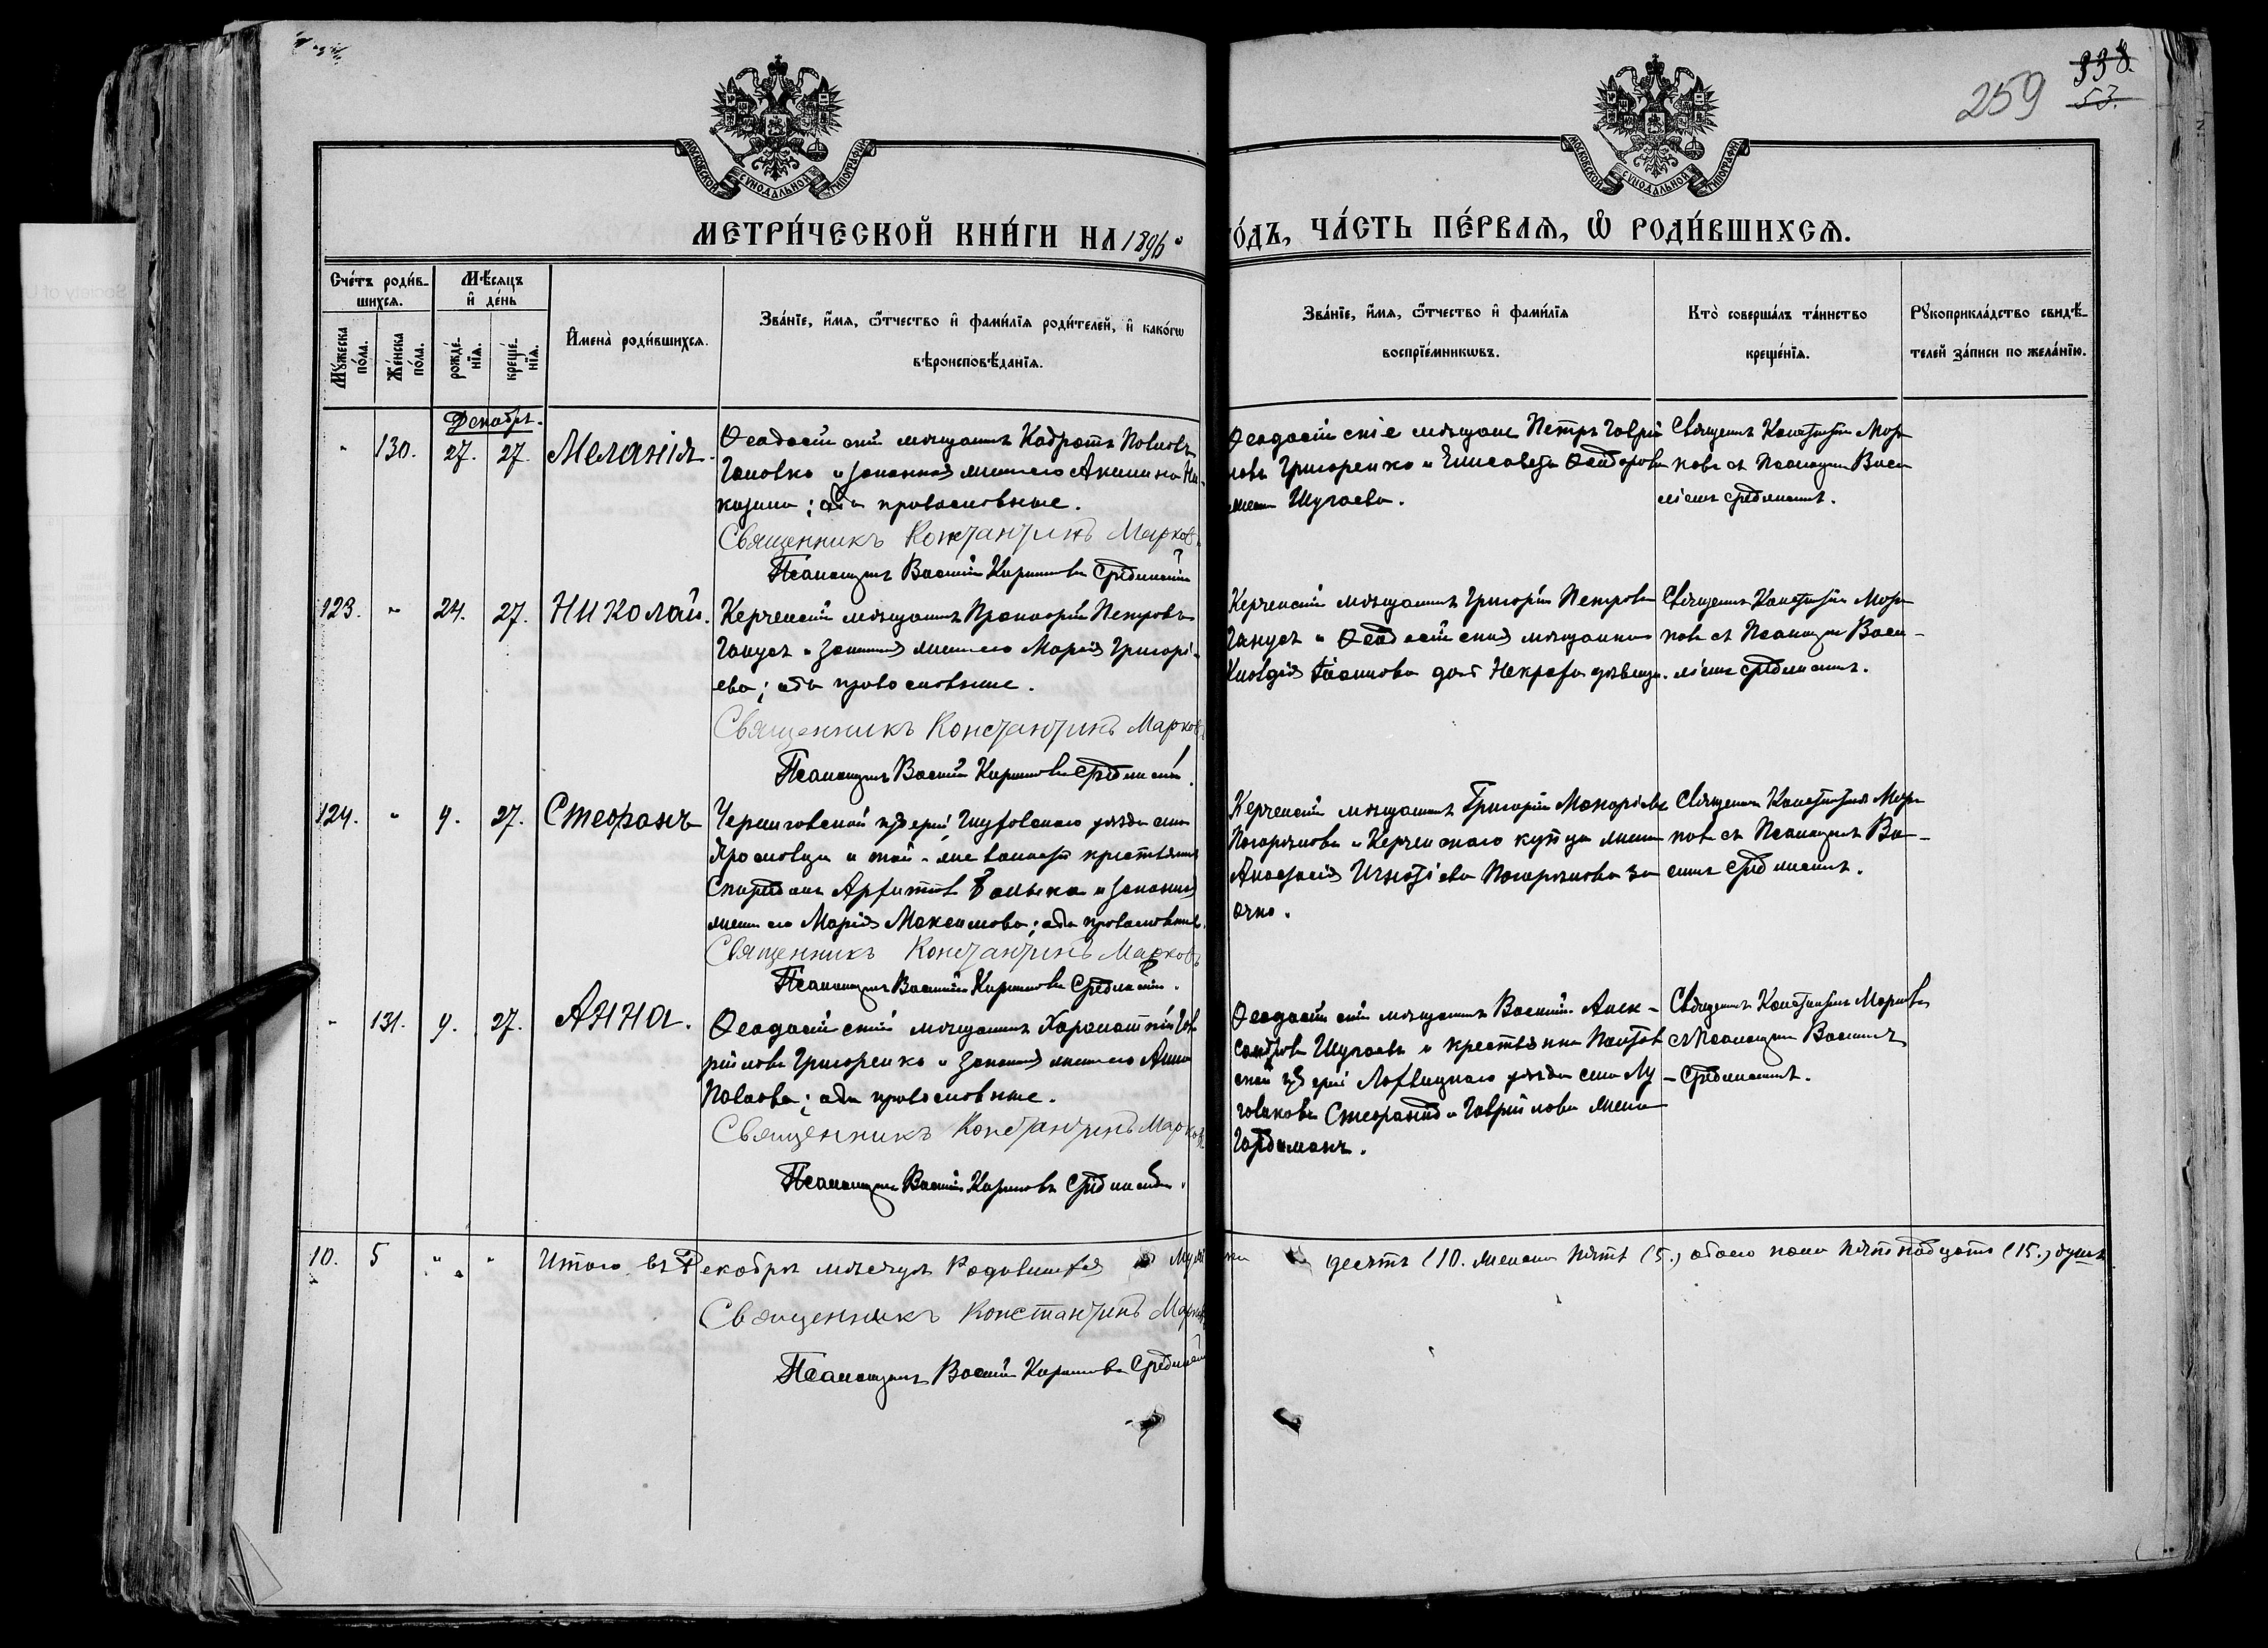 259
338.
53.
МОСКОВСКОЙ СѴНОДАЛЬНОЙ ТИПОГРАФІИ
МОСКОВСКОЙ СѴНОДАЛЬНОЙ ТИПОГРАФІИ
МЕТРИ́ЧЕСКОЙ КНИ́ГИ НА 1896
ГО́ДЪ, ЧА́СТЬ ПЕ́РВАѦ, Ѿ РОДИ́ВШИХСѦ.
Сче́тъ роди́в-
шихсѧ.
Мꙋ́жеска по́ла.
Же́нска по́ла.
Мѣ́сѧцъ
и҆ де́нь
рожде́-
нїѧ.
креще́-
нїѧ.
И҆мена̀ роди́вшихсѧ.
Зва́нїе, и҆́мѧ, ѻ҆́тчество и҆ фамі́лїѧ роди́телей, и҆ како́гѡ
вѣроисповѣ́данїѧ.
Зва́нїе, и҆́мѧ, ѻ҆́тчество и҆ фамі́лїѧ
воспрїе́мникѡвъ.
Кто̀ соверша́лъ та́инство
креще́нїѧ.
Рꙋкоприкла́дство свидѣ́-
телей за́писи по жела́нїю.
Декабрь.
130. 27. 27. Меланія.
Ѳеодосійскій мѣщанинъ Кодратъ Павловъ
Головко и законная жена его Акилина Ни-
; оба православные.
Священникъ Константинъ Марков
Псаломщикъ Василій Кириловъ Срединскій
Ѳеодосійскіе мѣщане Петръ Гаврі
ловъ Григоренко и Елисавета Ѳеодорова
Шугаева.
Священникъ Константинъ Мар-
ковъ съ Псаломщикомъ Васи-
ліемъ Срединскимъ.
123. 24. 27. Николай.
Керченскій мѣщанинъ Прокопій Петровъ
и законная жена его Марія Григорі-
ева; оба православные.
Священникъ Константинъ Марков
Псаломщикъ Василій Кириловъ Срединскій.
Керченскій мѣщанинъ Григорій Петровъ
и Ѳеодосійская мѣщанка
Клавдія дочь Некраса дѣвица.
Священникъ Константинъ Мар-
ковъ съ Псаломщикомъ Васи-
ліемъ Срединскимъ.
124. 9. 27. Стефанъ
Черниговской губерніи, уѣзда села
Ярославца и той-же волости крестьянинъ
Спиридонъ и законная
жена его Марія Максимова; оба православные.
Священникъ Константинъ Марковъ
Псаломщикъ Василій Кириловъ Срединскій.
Керченскій мѣщанинъ Григорій
и Керченскаго купца жена
Анастасія Игнатіева за
очно.
Священникъ Константинъ Мар-
ковъ съ Псаломщикомъ Ва-
Срединскимъ.
131. 9. 27. Анна.
Ѳеодосійскій мѣщанинъ Гав
ріиловъ Григоренко и законная жена его Анна
Павлова; оба православные.
Священникъ Константинъ Марков
Псаломщикъ Василій Кириловъ Срединскій.
Ѳеодосійскій мѣщанинъ Василій Алек-
сандровъ Шугаевъ и крестьянка Полтав
ской губерніи Лохвицкаго уѣзда села Лу-
Стефанида Гавріилова жена
Гордиманъ.
Священникъ Константинъ Марковъ
съ Псаломщикомъ Василіемъ
Срединскимъ.
10. 5 Итого въ Декабрѣ мѣсяцѣ Родившихся Муж
ска десять (10. женска пять (5.) обоего пола пятнадцать (15.) душъ
Священникъ Константинъ Марков
Псаломщикъ Василій Кириловъ Срединскій